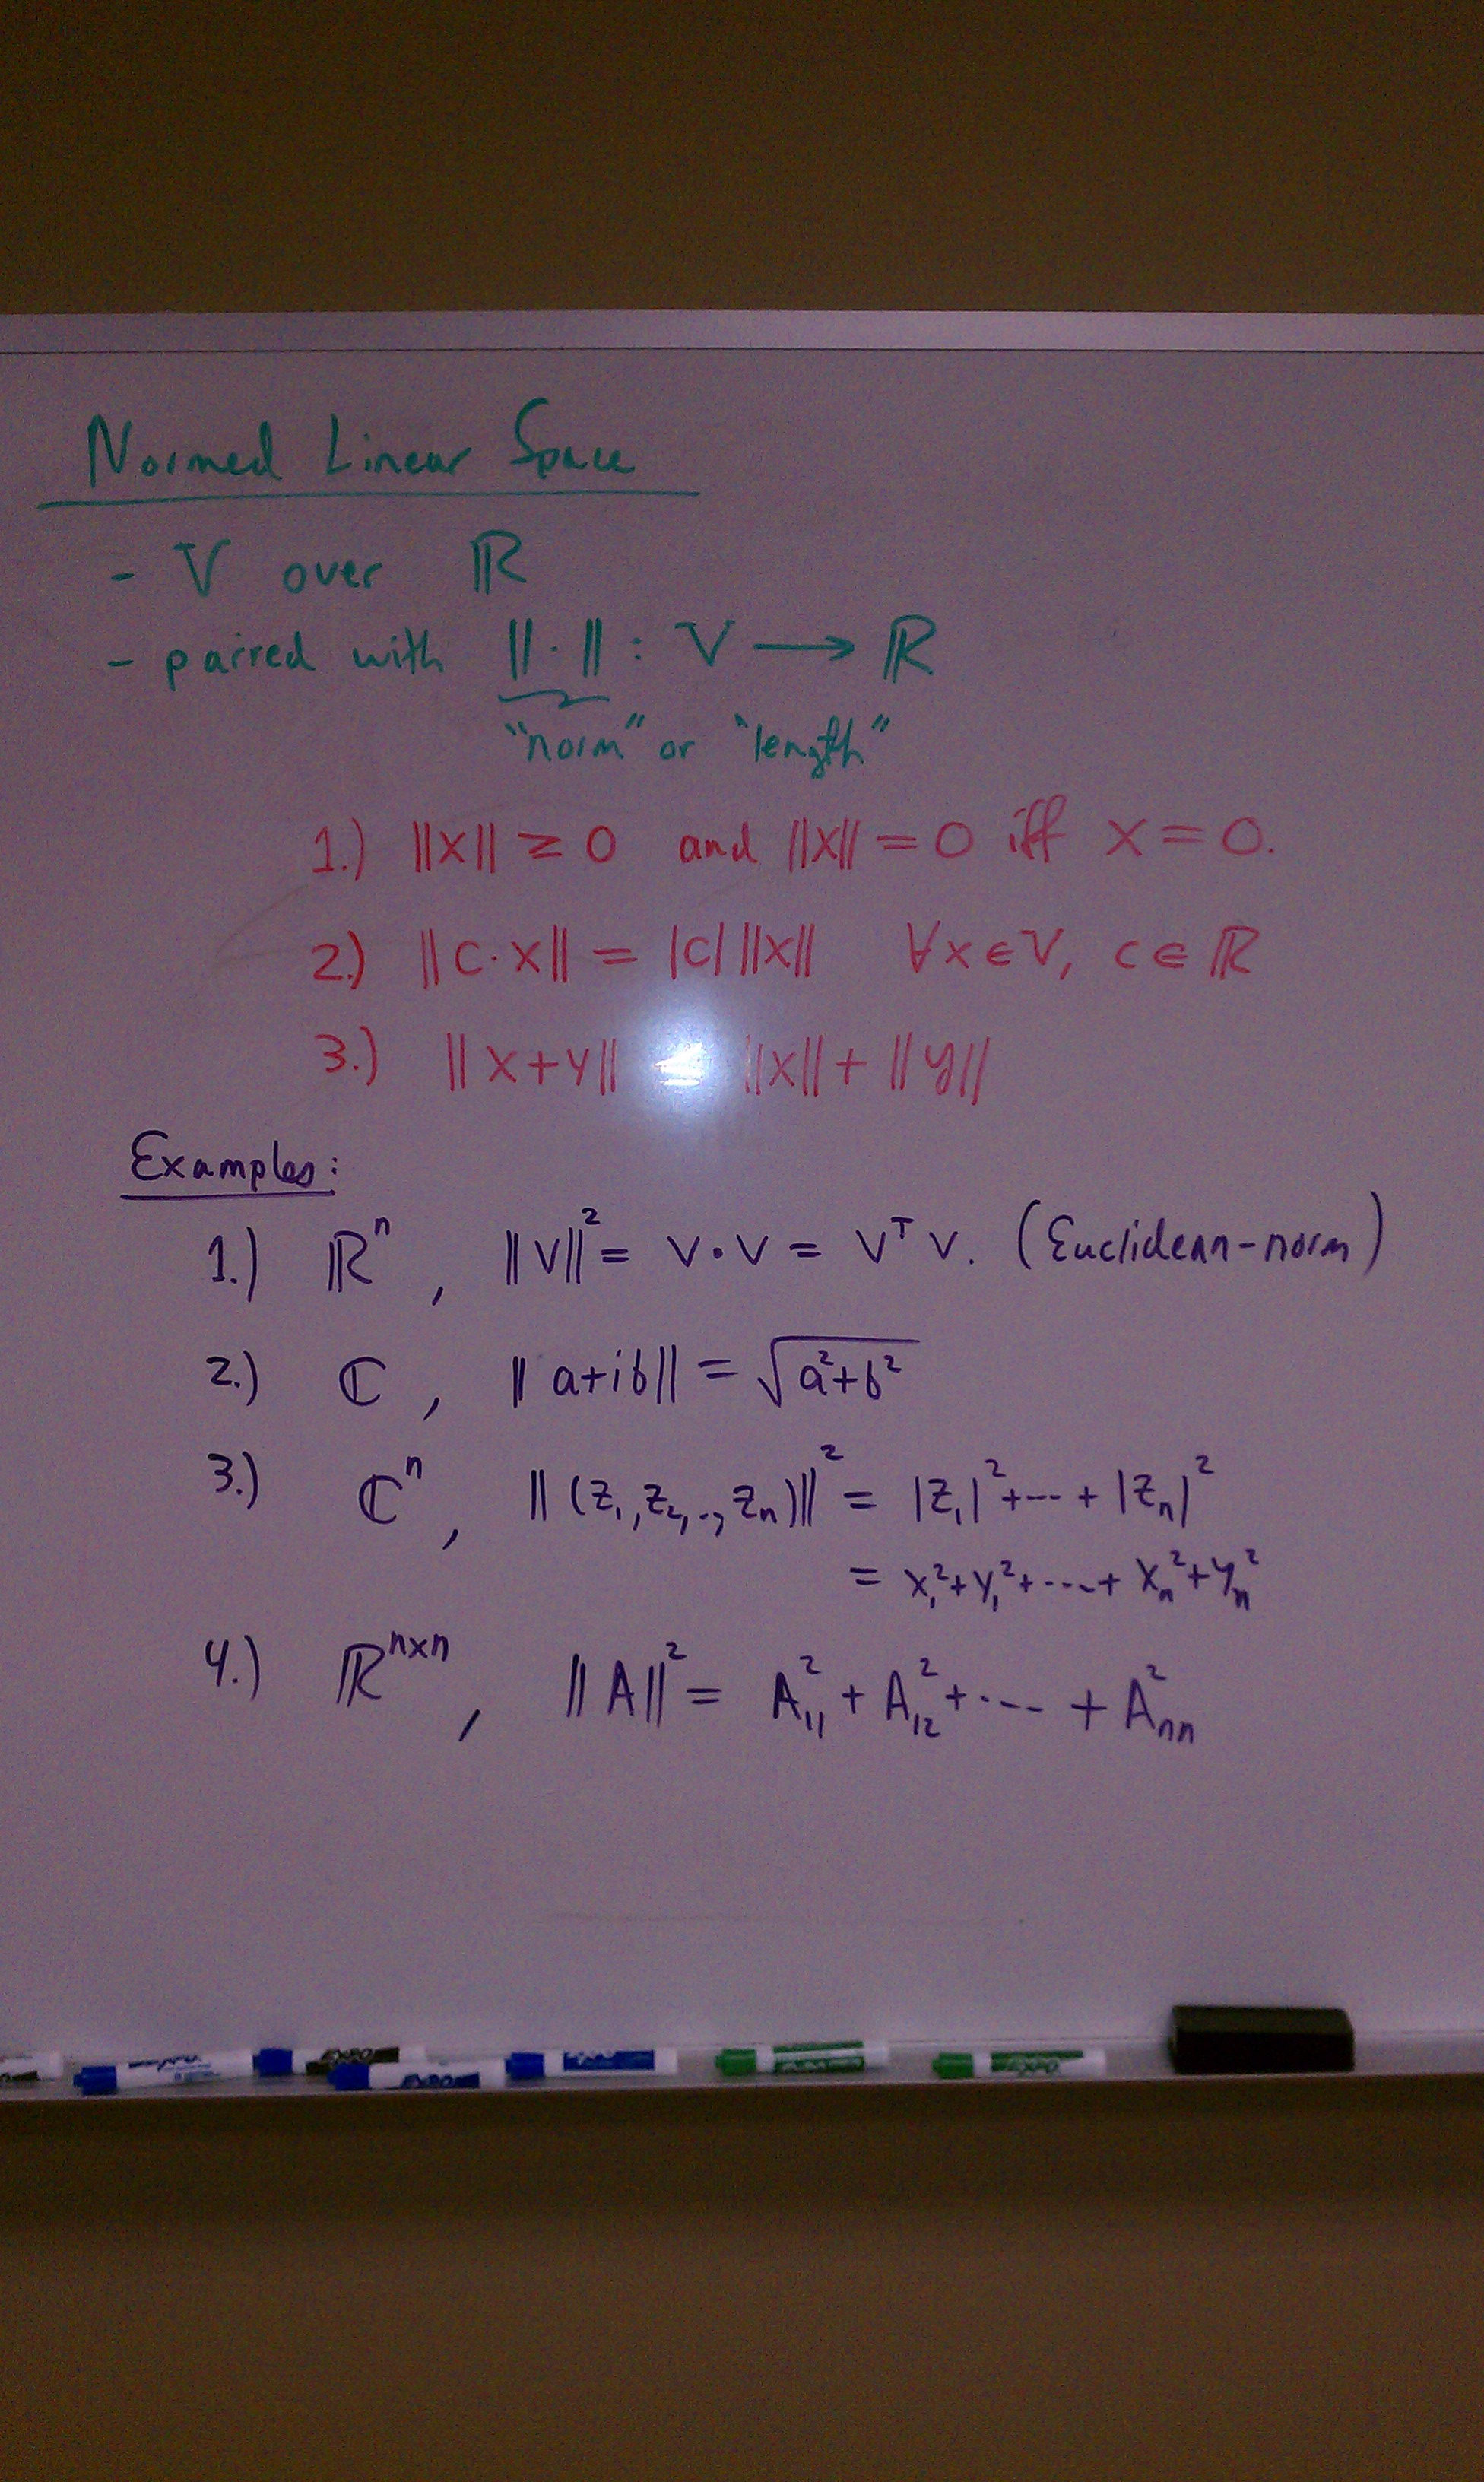 Normed Linear Space
- V over ℝ
- paired with ||·|| : V ⟶ ℝ
"norm" or "length"
1.) ||x|| ≥ 0 and ||x|| = 0 iff x = 0.
2.) ||c·x|| = |c| ||x|| ∀x∈V, c∈ℝ
3.) ||x+y|| ≤ ||x|| + ||y||
Examples:
1.) ℝⁿ, ||v||² = v•v = vᵀv. (Euclidean-norm)
2.) ℂ, ||a+ib|| = √(a²+b²)
3.) ℂⁿ, ||(z₁,z₂,..,zₙ)||² = |z₁|²+···+|zₙ|²
= x₁²+y₁²+····+xₙ²+yₙ²
4.) ℝⁿˣⁿ, ||A||² = A₁₁² + A₁₂² +···· + Aₙₙ²
EXPO
EXPO
EXPO